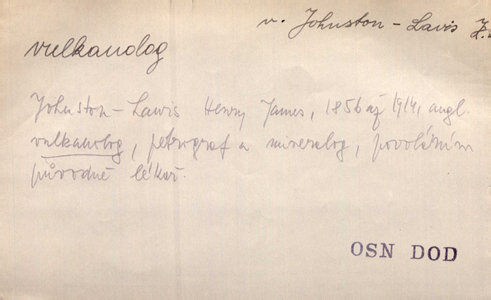 v. Johnston-Lavis
vulkanolog
Johnston-Lawis Henry James, 1856 až 1914, angl.
vulkanolog, petrograf a mineralog, povoláním
původně lékař.
OSN DOD